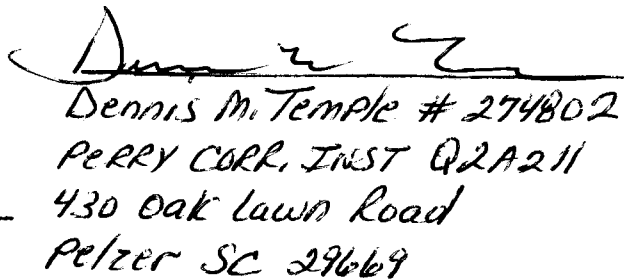 Dennis M. Temple # 274802
PERRY CORR. INST Q2A211
430 Oak Lawn Road
Pelzer SC 29669